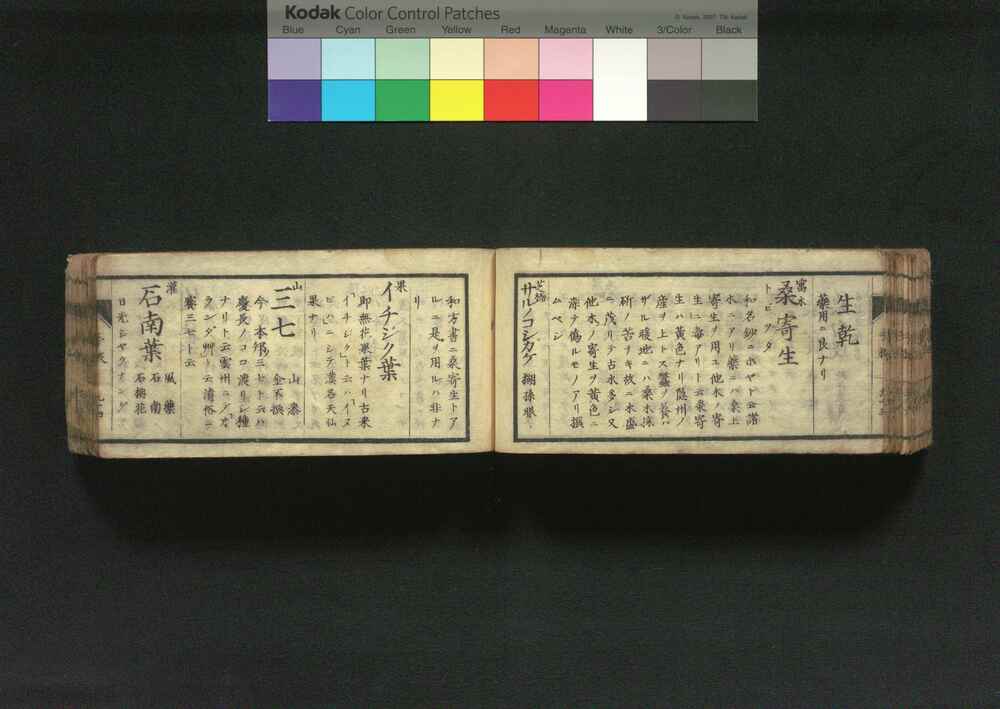 Kodak Color Control Patches
© Kodak, 2007 TM: Kodak
Blue Cyan Green Yellow Red Magenta White 3/Color Black
生乾
藥用ニ良ナリ
寓木
桑寄生
トビヅタ
和名鈔ニホヤト云諸
木ニアリ藥ニハ桑上
寄生ヲ用ユ他木ノ寄
生ニ毒アリト云桑寄
生ハ黄色ナリ隨州ノ
産ヲ上トス蠶ノ養ハ
ザル暖地ニハ桑木採
斫ノ苦ナキ故ニ木盛
ニ茂リテ古木多シ又
他木ノ寄生ヲ黄色ニ
染テ偽ルモノアリ撰
ムベシ
芝栭
サルノコシカケ 猢孫眼
和方書ニ桑寄生トア
ルニ是ヲ用ルハ非ナ
リ
果
イチジク葉
即無花果葉ナリ古来
イチジクト云ハイヌ
ビハニシテ漢名天仙
果ナリ
山
三七 山漆 金不換
今本邦三七ト云ハ
慶長ノコロ渡リシ種
ナリト云雲州ニテオ
ランダ艸ト云清俗ニ
賽三七ト云
灌
石南葉 風藥 石南
日光シャクナンゲ 石楠花